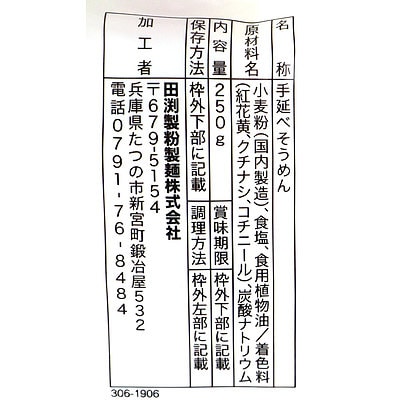 名称 手延べそうめん
原材料名 小麦粉(国内製造)、食塩、食用植物油/着色料
(紅花黄、クチナシ、コチニール)、炭酸ナトリウム
内容量 250g 賞味期限 枠外下部に記載
保存方法 枠外下部に記載 調理方法 枠外左部に記載
加工者 田渕製粉製麺株式会社
〒679-5154
兵庫県たつの市新宮町鍛冶屋532
電話0791-76-8484
306-1906